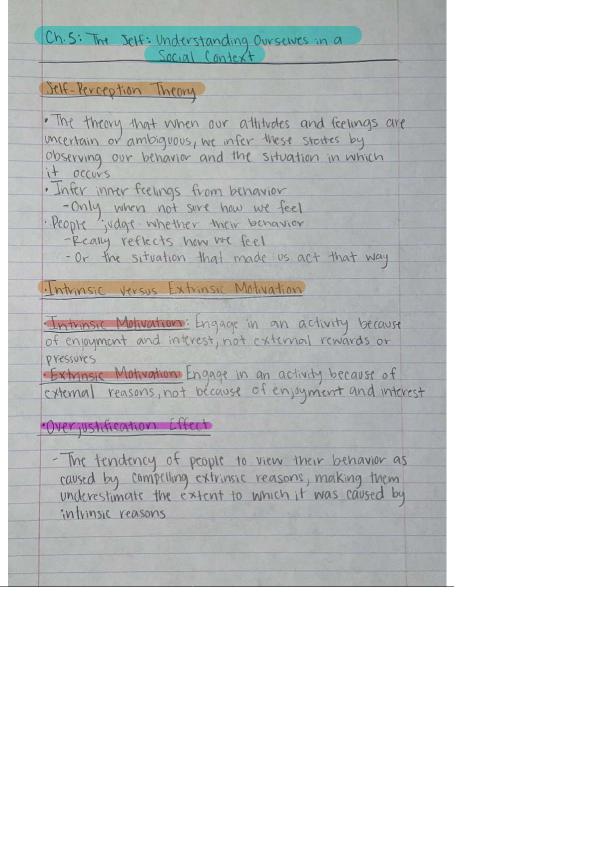 Ch.5: The Self: Understanding Ourselves in a
Social Context
Self-Perception Theory
• The theory that when our attitudes and feelings are
uncertain or ambiguous, we infer these states by
observing our behavior and the situation in which
it occurs
• Infer inner feelings from behavior
-Only when not sure how we feel
• People judge whether their behavior
-Really reflects how we feel
- Or the situation that made us act that way
•Intrinsic versus Extrinsic Motivation
•Intrinsic Motivation: Engage in an activity because
of enjoyment and interest, not external rewards or
pressures
•Extrinsic Motivation Engage in an activity because of
external reasons, not because of enjoyment and interest
•Overjustification Effect
- The tendency of people to view their behavior as
caused by compelling extrinsic reasons, making them
underestimate the extent to which it was caused by
intrinsic reasons